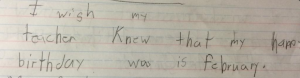 I wish my
teicher Knew that my ham
birthday woo is february.